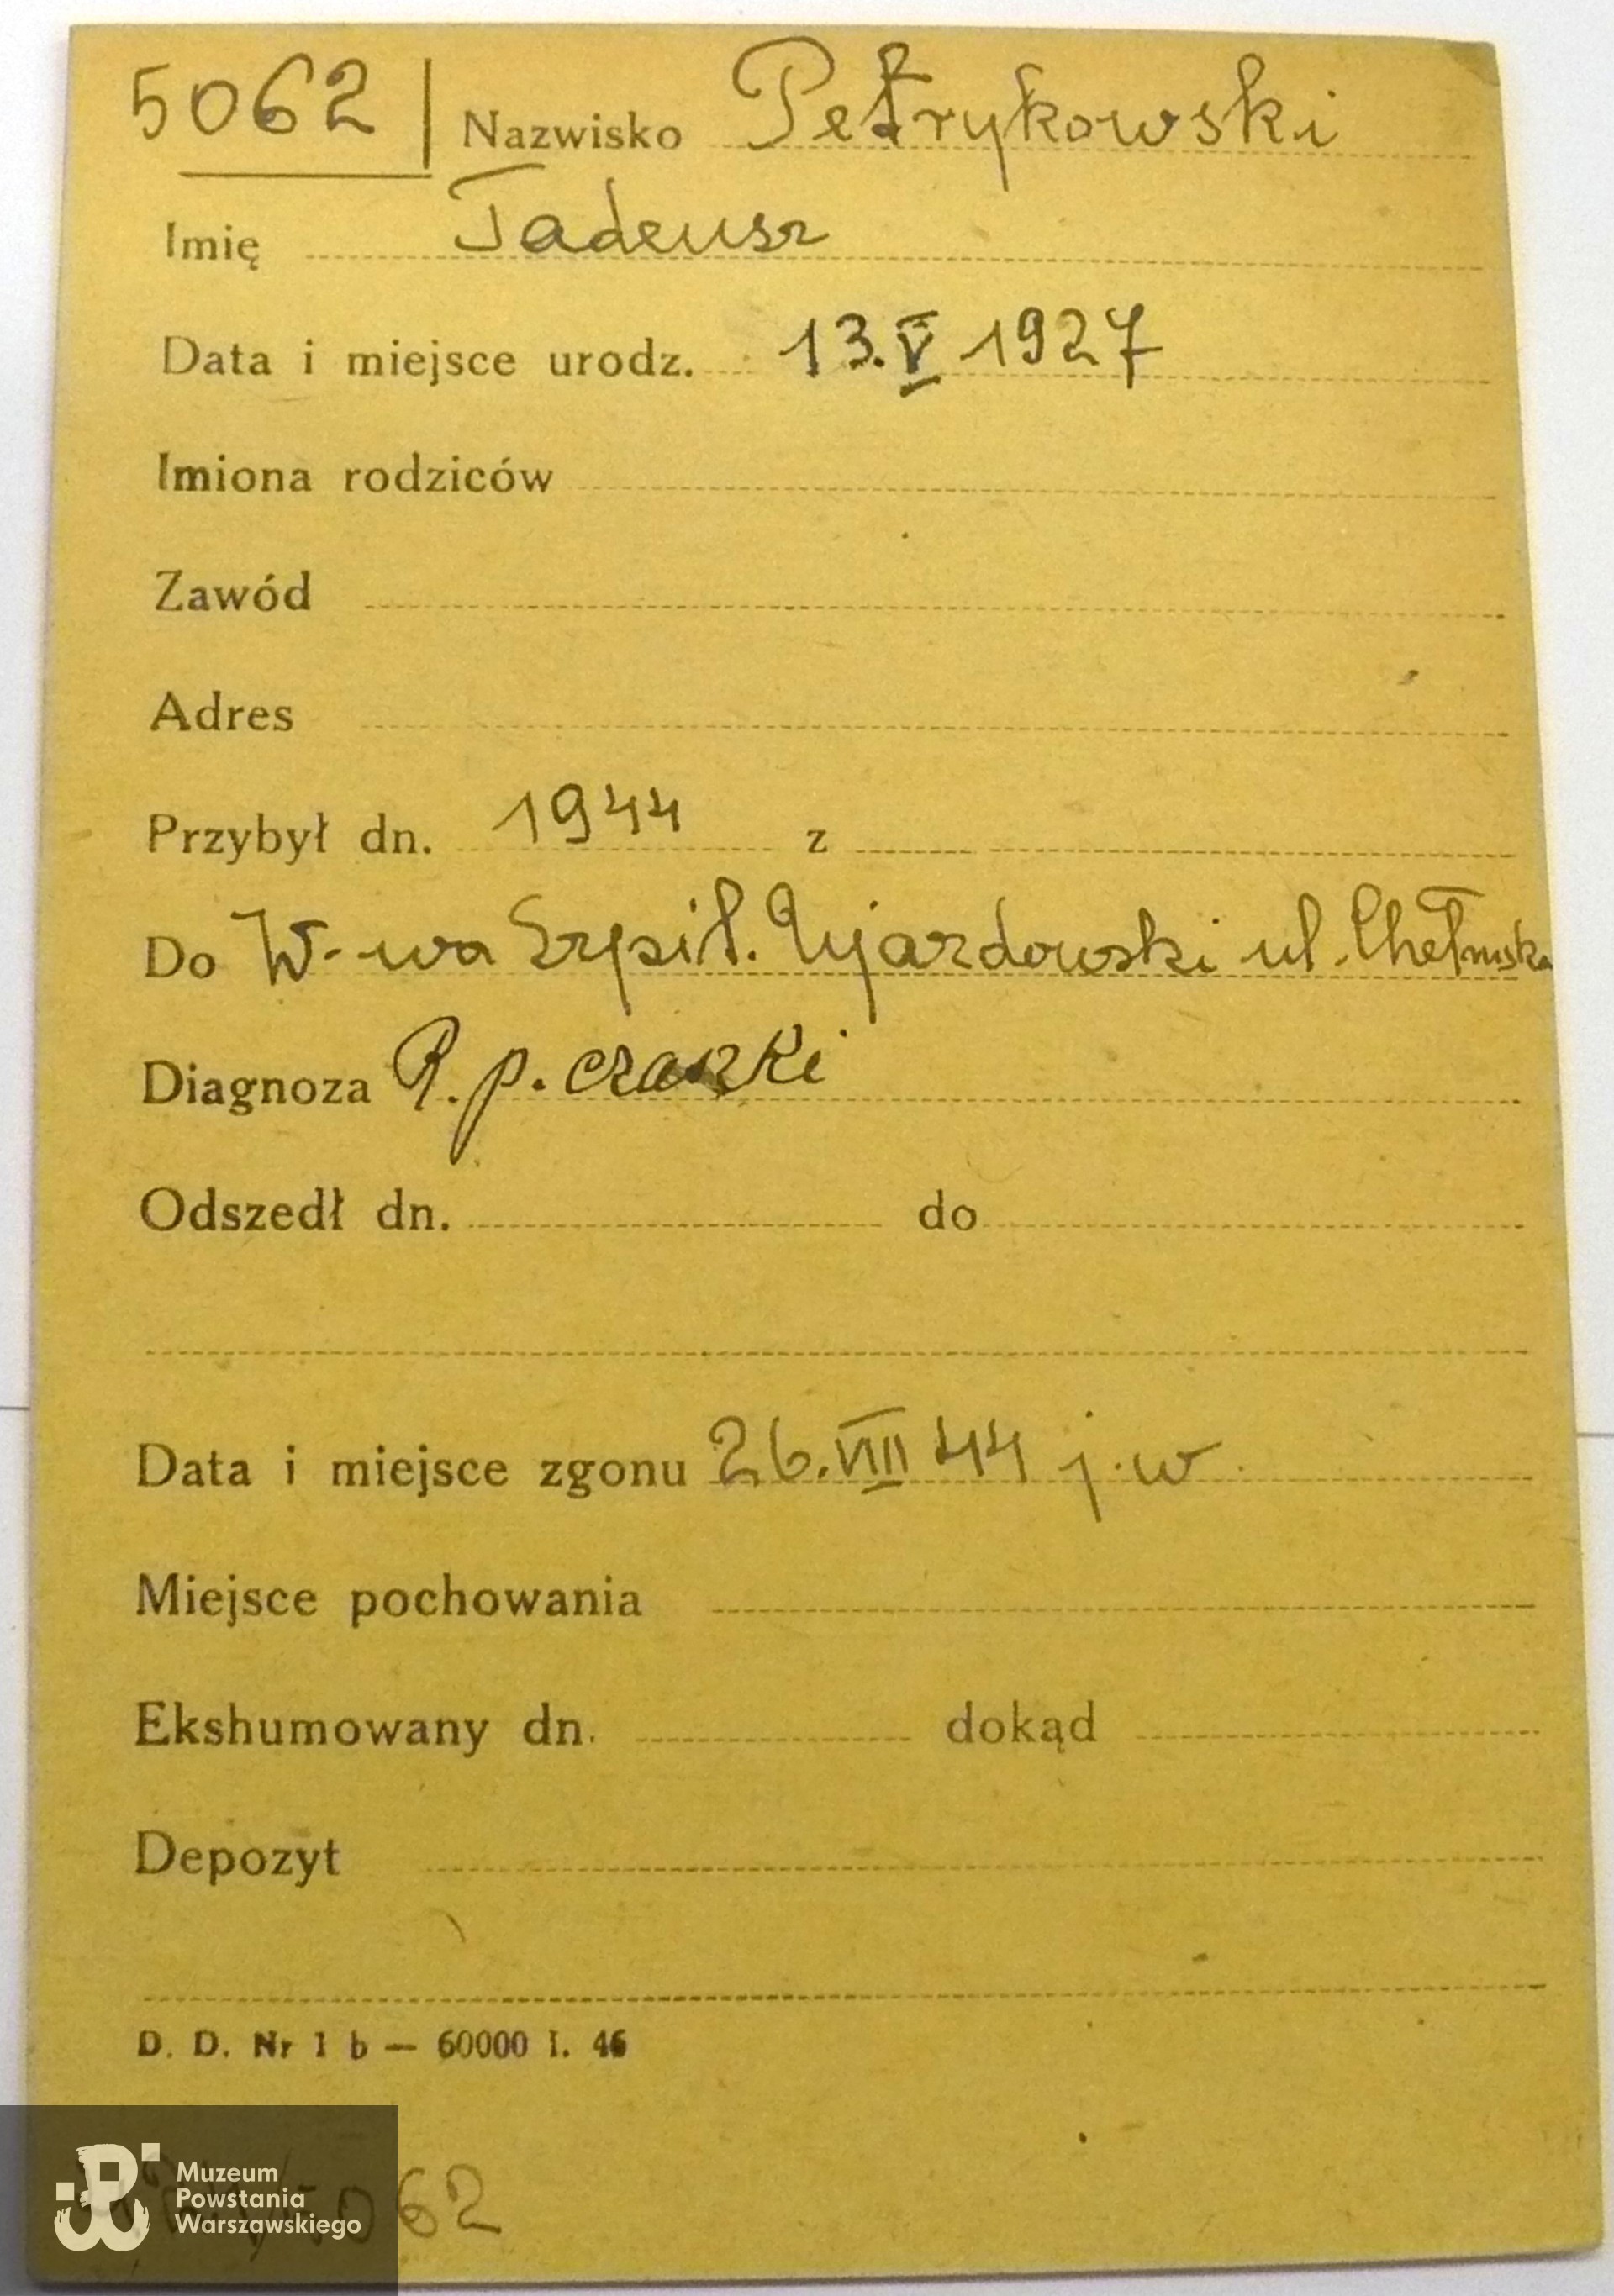 5062 Nazwisko Petrykowski
Imię Tadeusz
Data i miejsce urodz. 13.V 1927
Imiona rodziców
Zawód
Adres
Przybył dn. 1944 z
Do W-wa Szpit. Ujazdowski ul. Chełmska
Diagnoza R.p. czaszki
Odszedł dn. do
Data i miejsce zgonu 26.VIII 44 j.w.
Miejsce pochowania
Ekshumowany dn. dokąd
Depozyt
D. D. Nr 1 b — 60000 I. 46
5062
Muzeum
Powstania
Warszawskiego